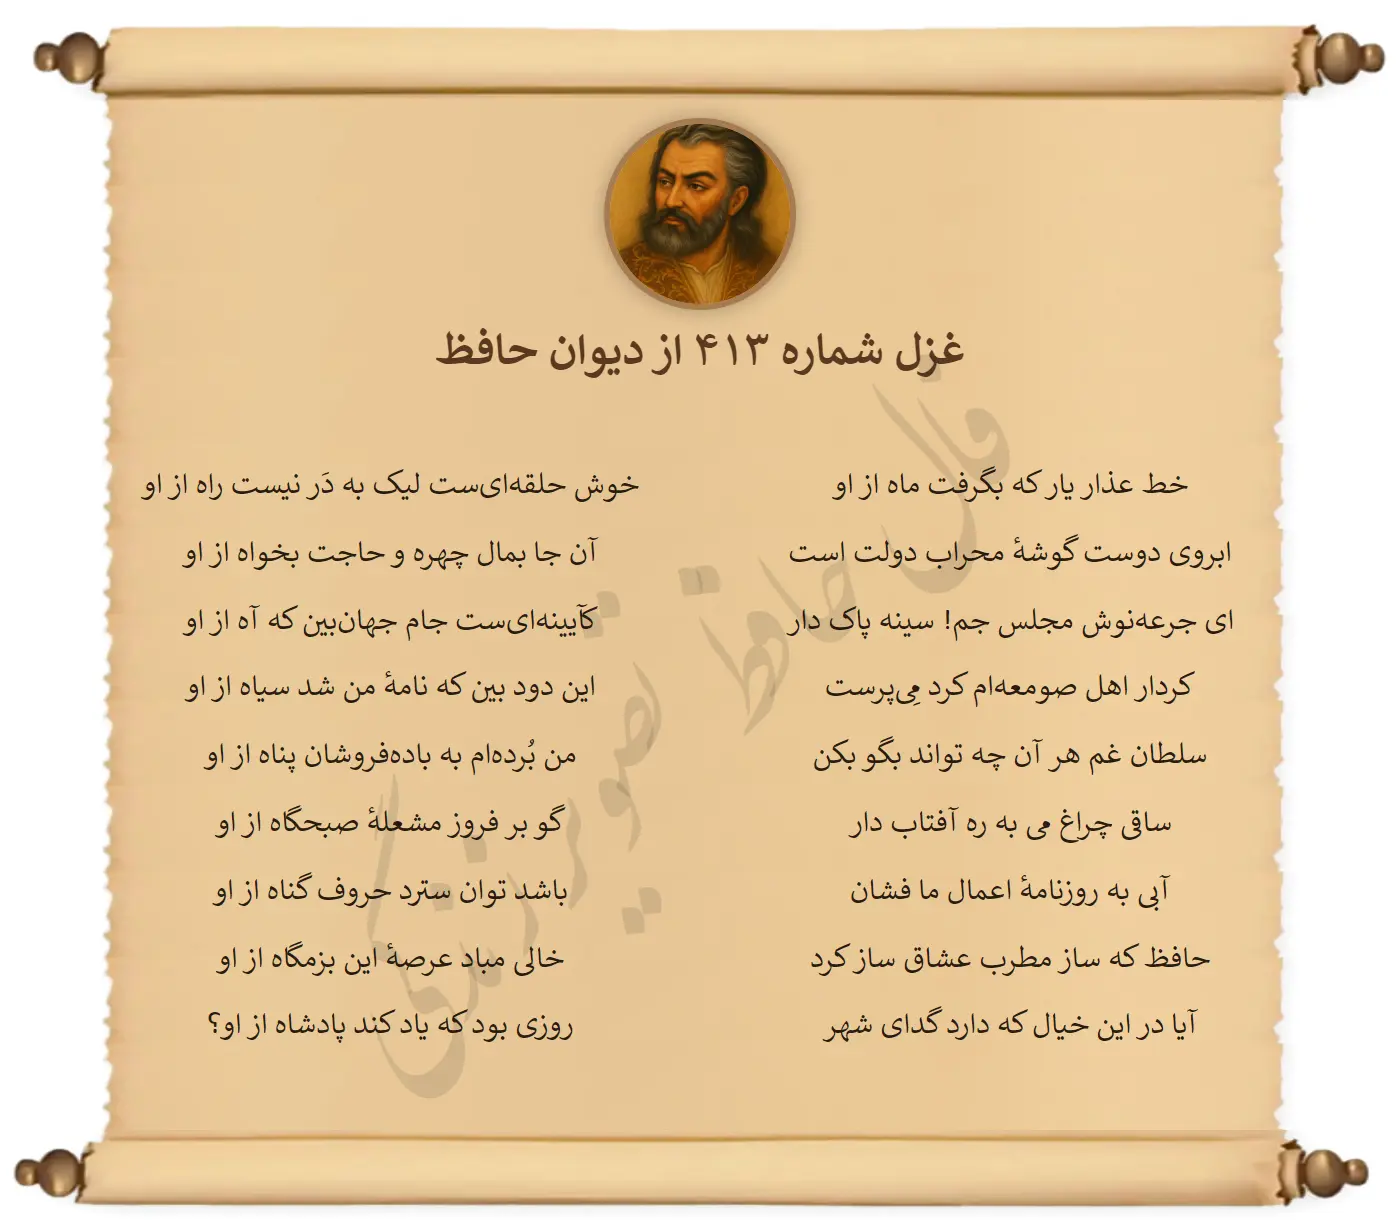 غزل شماره ۴۱۳ از دیوان حافظ
خط عذار یار که بگرفت ماه از او خوش حلقه‌ای‌ست لیک به دَر نیست راه از او
ابروی دوست گوشهٔ محراب دولت است آن جا بمال چهره و حاجت بخواه از او
ای جرعه‌نوش مجلس جم! سینه پاک دار کآیینه‌ای‌ست جام جهان‌بین که آه از او
کردار اهل صومعه‌ام کرد مِی‌پرست این دود بین که نامهٔ من شد سیاه از او
سلطان غم هر آن چه تواند بگو بکن من بُرده‌ام به باده‌فروشان پناه از او
ساقی چراغ می به ره آفتاب دار گو بر فروز مشعلهٔ صبحگاه از او
آبی به روزنامهٔ اعمال ما فشان باشد توان سترد حروف گناه از او
حافظ که ساز مطرب عشاق ساز کرد خالی مباد عرصهٔ این بزمگاه از او
آیا در این خیال که دارد گدای شهر روزی بود که یاد کند پادشاه از او؟
فال حافظ تصویر زندگی